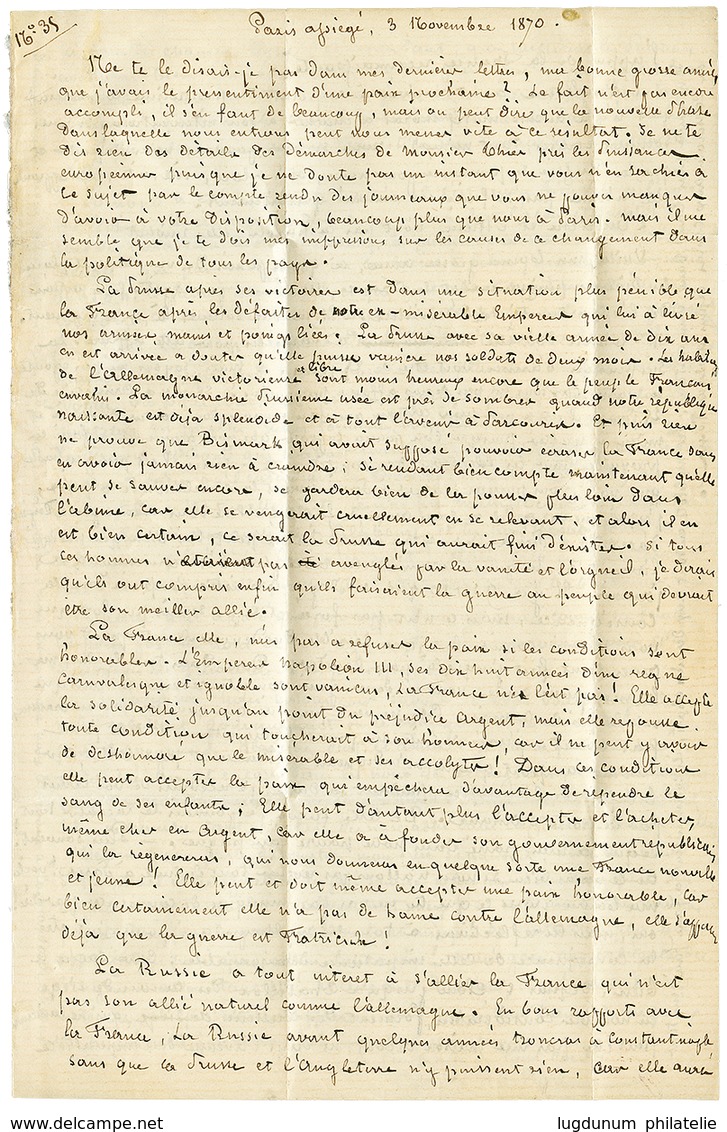 No 35
Paris assiégé, 3 Novembre 1870.
Ne te le disais-je pas dans mes dernières lettres, ma bonne grosse amie,
que j'avais le pressentiment d'une paix prochaine? Le fait n'est pas encore
accompli, il s'en faut de beaucoup, mais on peut dire que la nouvelle phase
dans laquelle nous entrons peut nous mener vite à ce résultat. Je ne te
dis rien des détails des démarches de Monsieur Thiers près les Puissances
européennes puisque je ne doute pas un instant que vous n'en sachiez à
ce sujet par le compte rendu des journeaux que vous ne pouvez manquer
d'avoir à votre disposition, beaucoup plus que nous à Paris. Mais il me
semble que je te dois mes impressions sur les causes de ce changement dans
la politique de tous les pays.
La Prusse après ses victoires est dans une situation plus pénible que
la France après les défaites de notre ex-misérable Empereur qui lui a livré
nos armées mains et poings liées. La Prusse avec sa vieille armée de dix ans
en est arrivée a douter qu'elle puisse vaincre nos soldats de deux mois. Les habitans
de l'Allemagne victorieuse et libre sont moins heureux encore que le peuple Français
envahi. La monarchie Prussienne usée est près de sombrer quand notre république
naissante est déja splendide et a tout l'avenir à parcourir. Et puis rien
ne prouve que Bismark qui avait supposé pouvoir écraser la France sans
en avoir jamais rien à craindre; se rendant bien compte maintenant qu'elle
peut se sauver encore, se gardera bien de la pousser plus loin dans
l'abîme, car elle se vengerait cruellement en se relevant, et alors il en
est bien certain, ce serait la Prusse qui aurait fini d'exister. Si tous
ces hommes n'étaient pas avenglés par la vanité et l'orgueil, je dirais
qu'ils ont compris enfin qu'ils faisaient la guerre au peuple qui devrait
être son meilleur allié.
La France elle, n'a pas a refuser la paix si les conditions sont
honorables. L'Empereur Napoléon III, ses dix huit années d'un règne
carnvalesque et ignoble sont vaincus, La France ne l'est pas! Elle accepte
la solidarité jusqu'au point du préjudice argent, mais elle repousse
toute condition qui toucherait à son honneur, car il ne peut y avoir
de deshonoré que le misérable et ses accolytes! Dans ces conditions
elle peut accepter la paix qui empêchera d'avantage de répendre le
sang de ses enfants; Elle peut d'autant plus l'accepter et l'acheter
même cher en argent, car elle a à fonder son gouvernement républicain
qui la régénerera, qui nous donnera en quelque sorte une France nouvelle
et jeune! Elle peut et doit même accepter une paix honorable, car
bien certainement elle n'a pas de haine contre l'allemagne, elle
déjà que la guerre est Fratricide!
La Russie a tout intéret à s'allier la France qui n'est
pas son allié naturel comme l'allemagne. En bons rapports avec
la France, La Russie avant quelques années tronera à Constantinople
sans que la Prusse et l'Angleterre n'y puissent rien, car elle aura
lugdunum philatelie